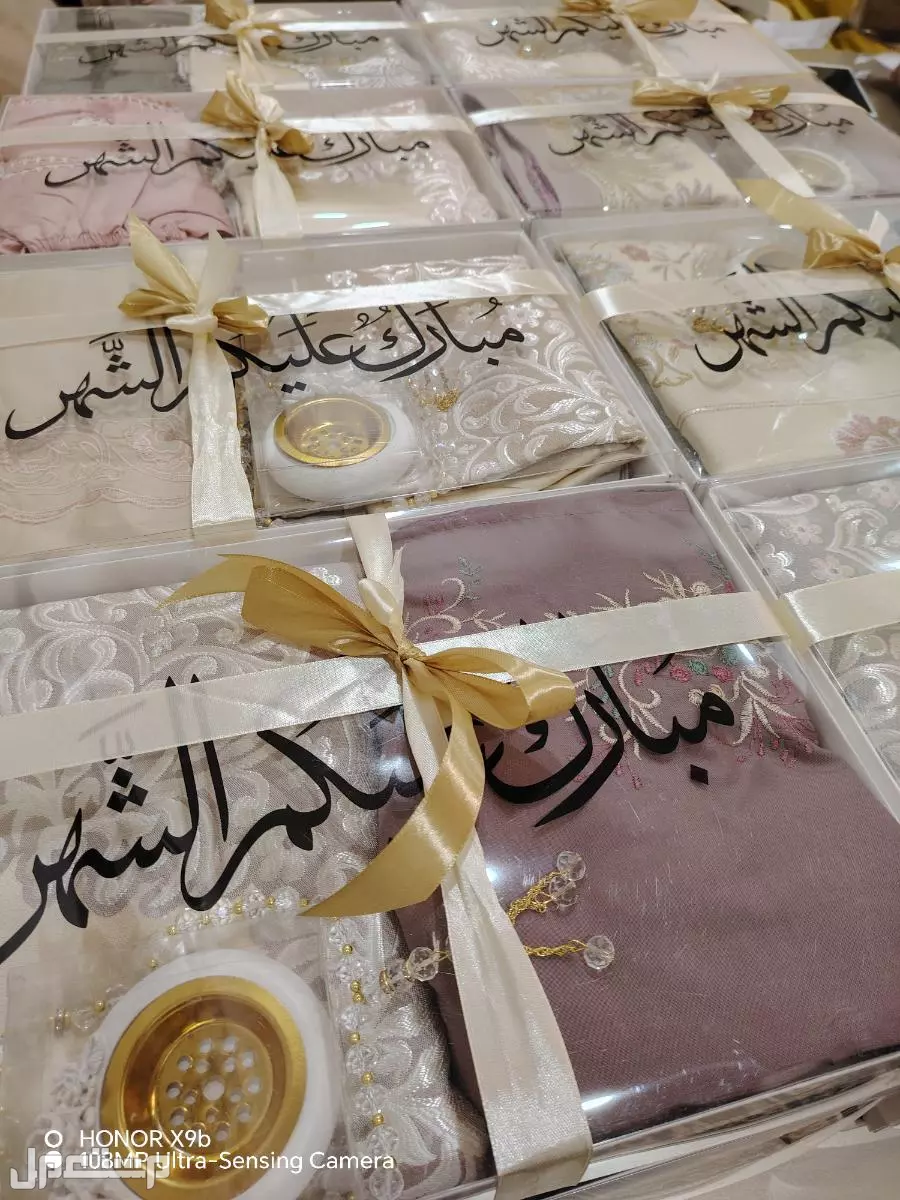 مبارك عليكم الشهر
مبارك عليكم الشهر
مبارك عليكم الشهر
مبارك عليكم الشهر
مُبَارَكٌ عَلَيكُم الشَّهر
عليكم الشهر
مبارك عليكم الشَّهر
HONOR X9b
108MP Ultra-Sensing Camera